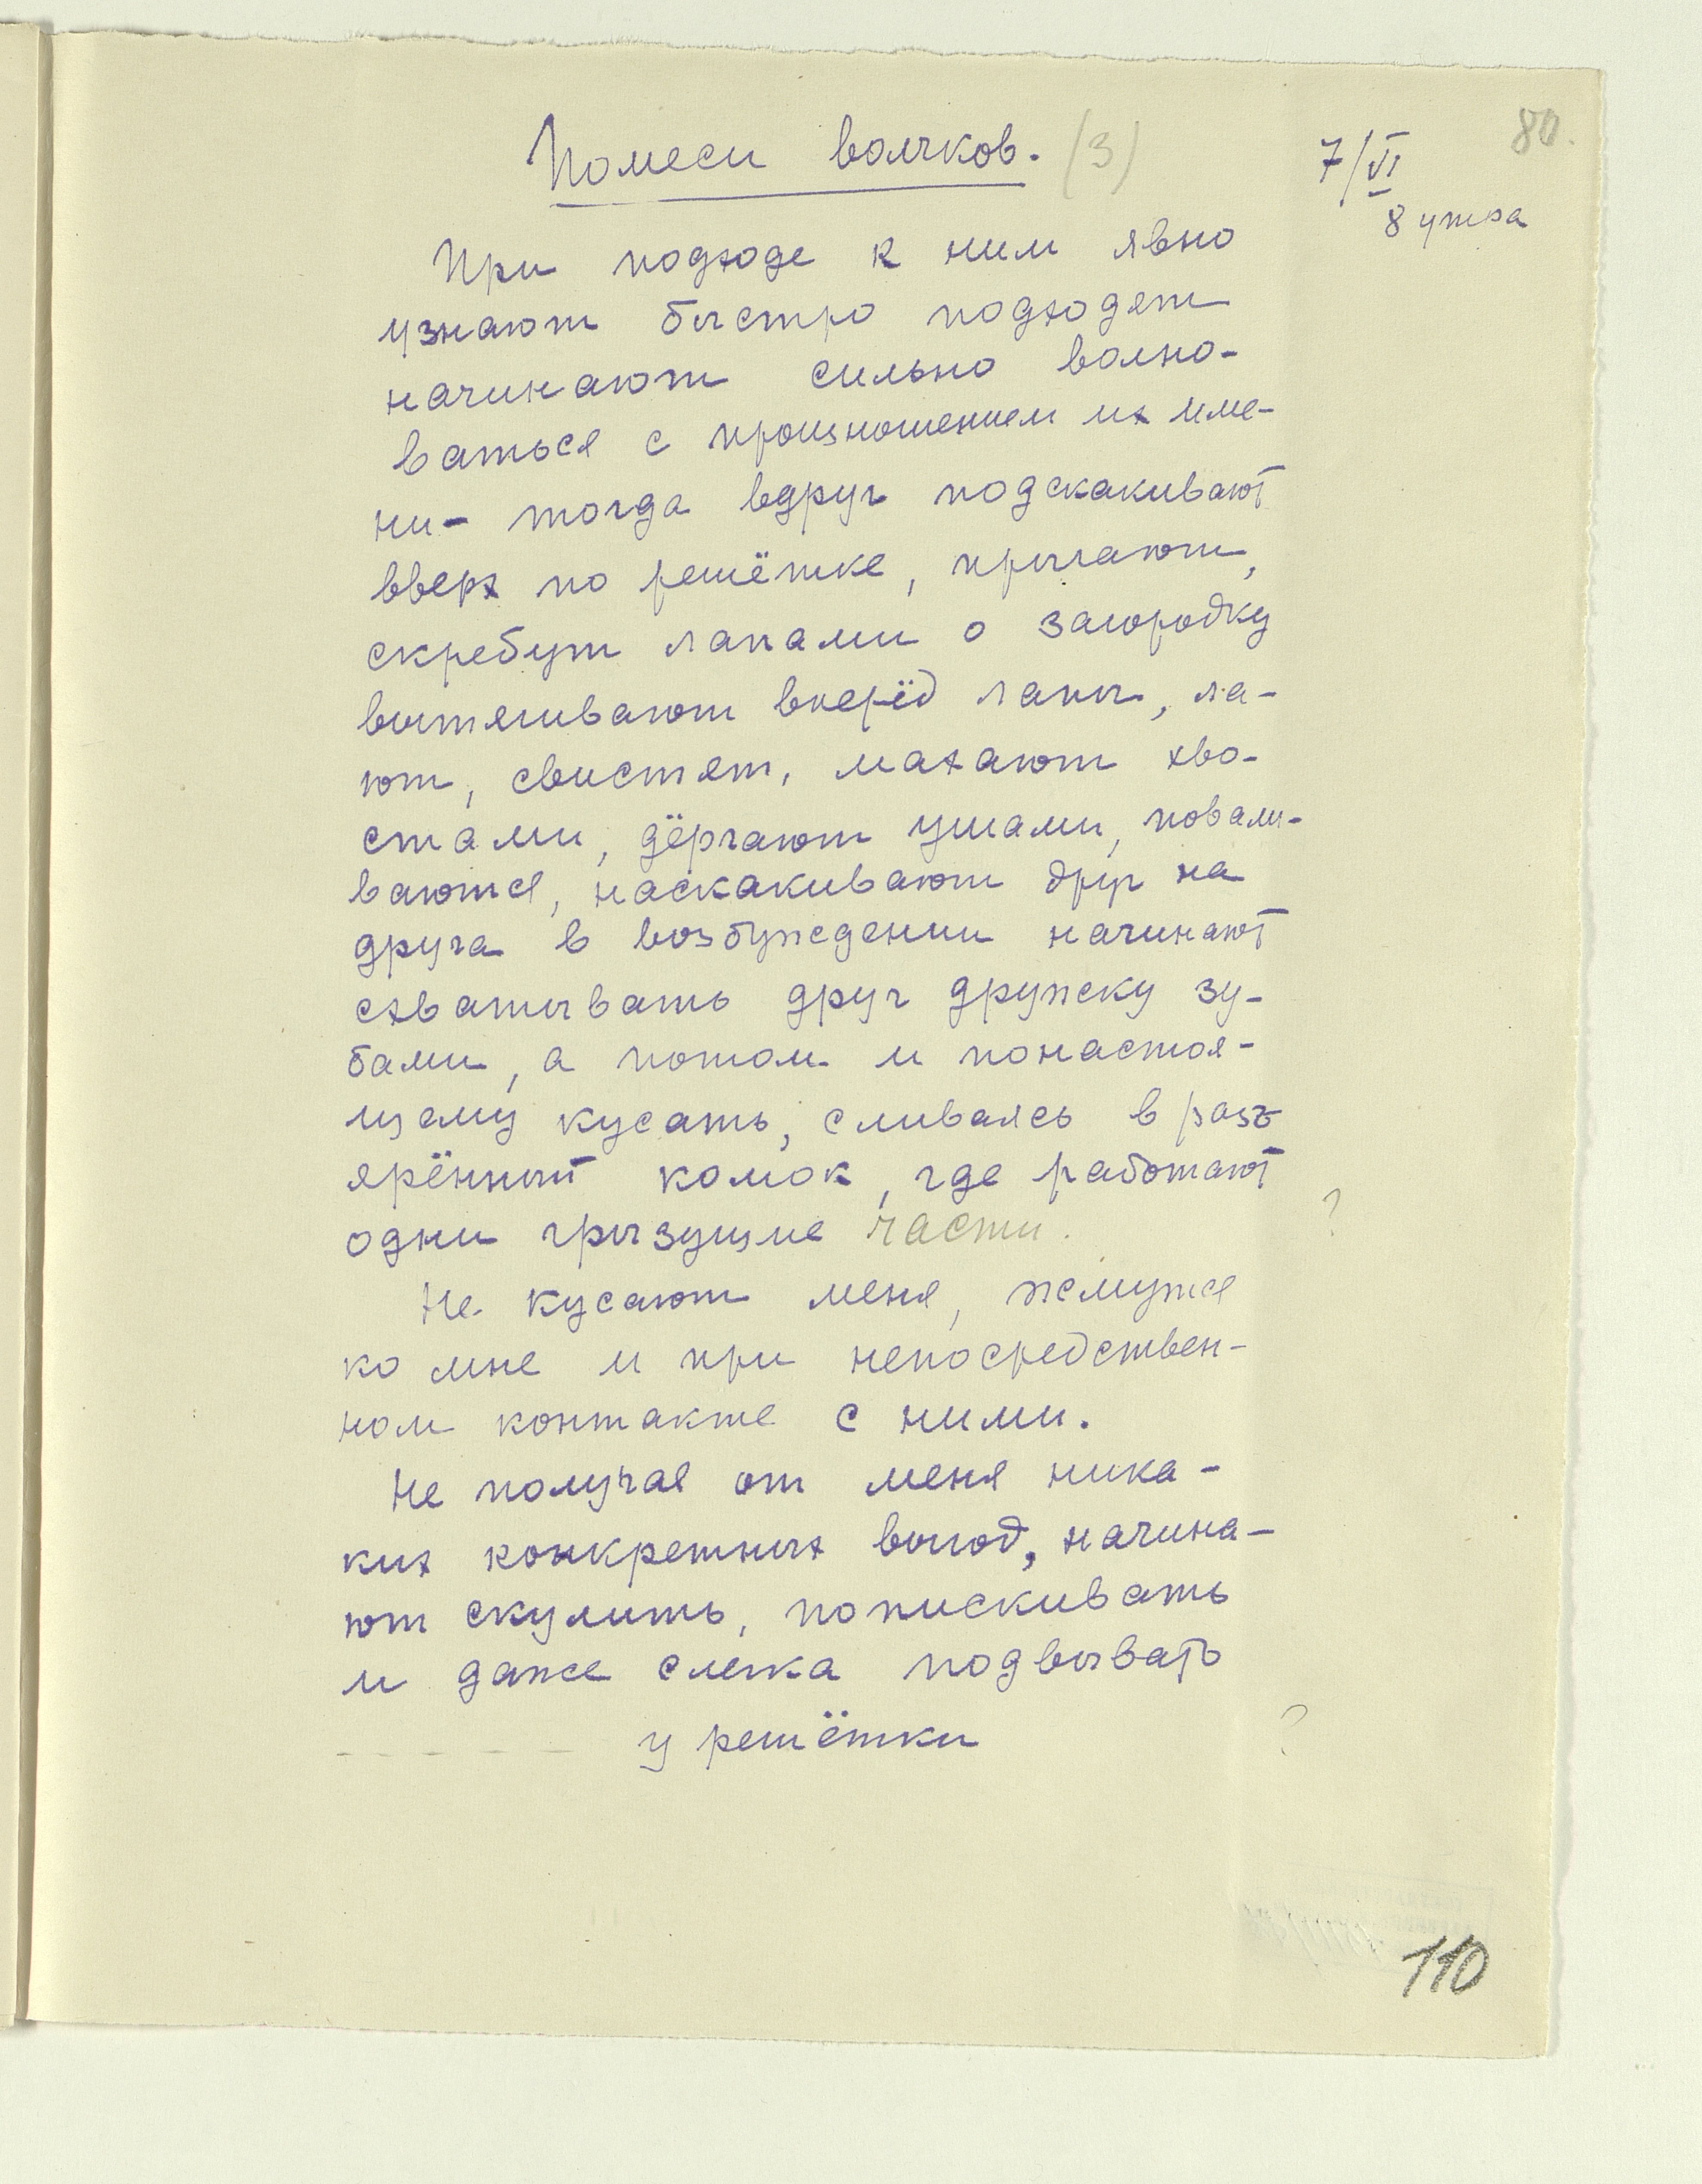 80.
Помеси волчков. (3)
7/VI
8 утра
При подходе к ним явно
узнают быстро подходят
начинают сильно волно-
ваться с произношением их име-
ни - тогда вдруг подскакивают
вверх по решётке, прыгают,
скребут лапами о загородку
вытягивают вперёд лапы, ла-
ют, свистят, махают хво-
стами, дёргают ушами, повали-
ваются, наскакивают друг на
друга в возбуждении начинают
схватывать друг дружку зу-
бами, а потом и понастоя-
щему кусать, сливаясь в разъ
ярённый комок, где работают
одни грызущие части. ?
Не кусают меня, жмутся
ко мне и при непосредствен-
ном контакте с ними.
Не получая от меня ника-
ких конкретных выгод, начина-
ют скулить, попискивать
и даже слегка подвывать
у решётки ?
110